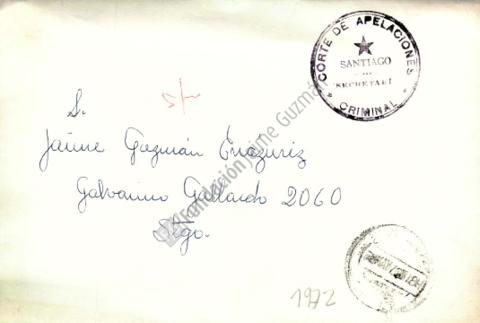 CORTE DE APELACIONES
SANTIAGO
SECRETARI
CRIMINAL
S.
Jaime Guzmán Errázuriz
Galvarino Gallardo 2060
Stgo.
Fundación Jaime Guzmán
1972